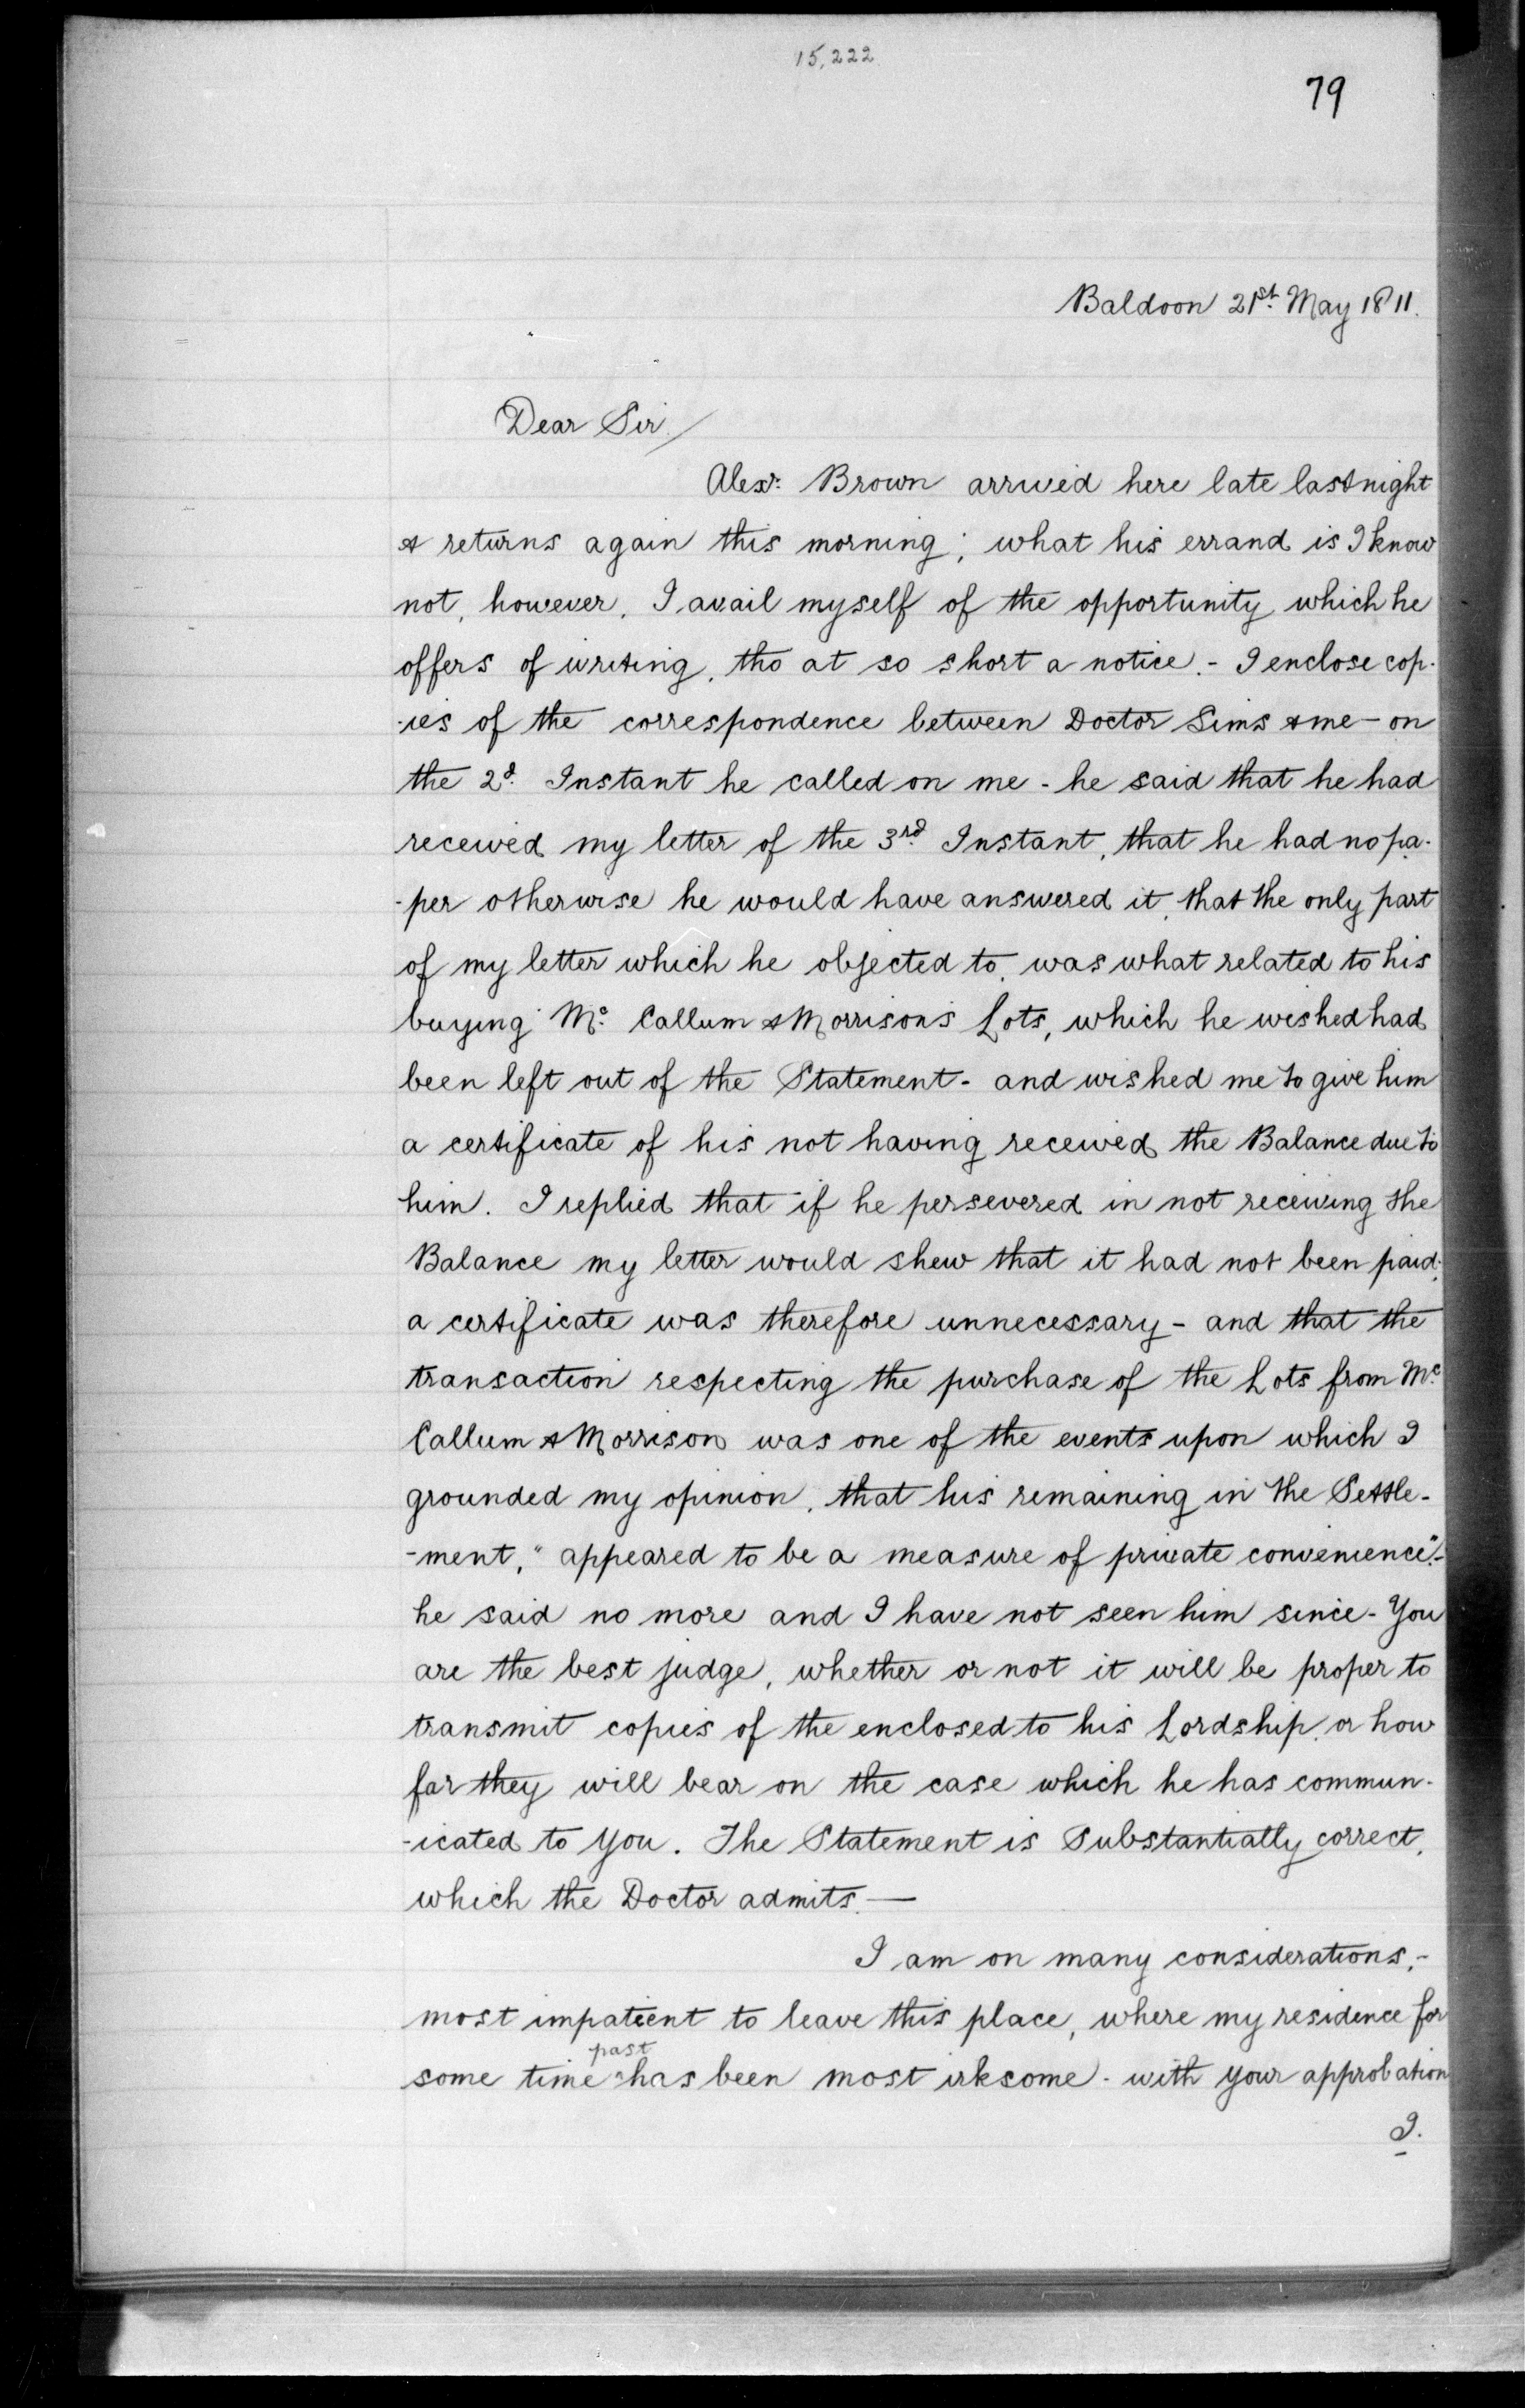 15,222
79
Baldoon 21st. May 1811.
Dear Sir/
Alexr. Brown arrived here late last night
& returns again this morning; what his errand is I know
not, however, I avail myself of the opportunity which he
offers of writing, tho at so short a notice. - I enclose cop-
-ies of the correspondence between Doctor Sims & me - on
the 2d. Instant he called on me - he said that he had
received my letter of the 3rd. Instant, that he had no pa-
-per otherwise he would have answered it, that the only part
of my letter which he objected to, was what related to his
buying Mc. Callum & Morrison's Lots, which he wished had
been left out of the Statement - and wished me to give him
a certificate of his not having received the Balance due to
him. I replied that if he persevered in not receiving the
Balance my letter would shew that it had not been paid;
a certificate was therefore unnecessary - and that the
transaction respecting the purchase of the Lots from Mc.
Callum & Morrison was one of the events upon which I
grounded my opinion, that his remaining in the Settle-
-ment, "appeared to be a measure of private convenience". -
he said no more and I have not seen him since - You
are the best judge, whether or not it will be proper to
transmit copies of the enclosed to his Lordship, or how
far they will bear on the case which he has commun-
-icated to you. The Statement is Substantially correct,
which the Doctor admits. —
I am on many considerations, -
most impatient to leave this place, where my residence for
some time past has been most irksome - with your approbation
I.